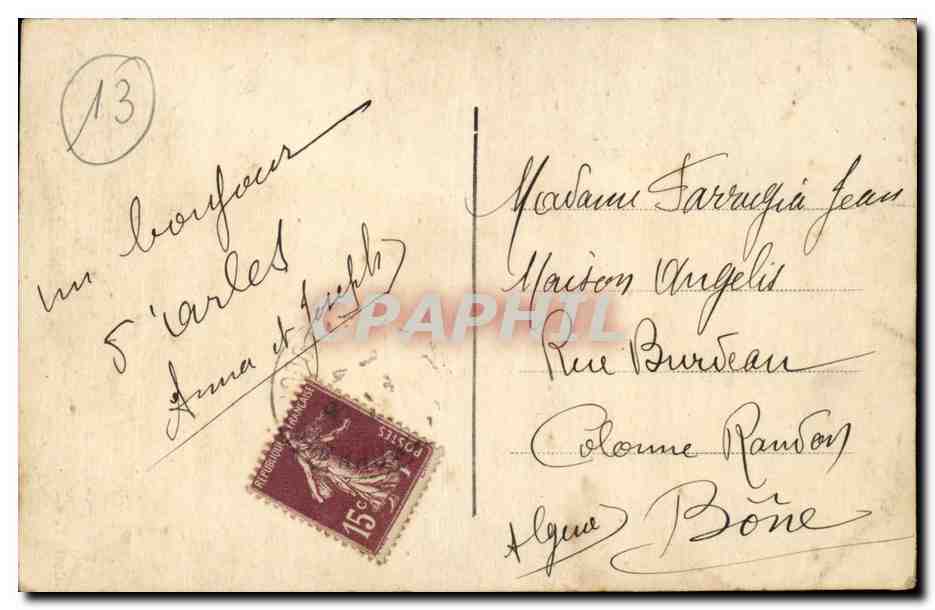 13
un bonjour
d'arles
Anna et Joseph
Madame Farrugia Jean
Maison Angelis
Rue Burdeau
Colonne Randon
Algérie Bône
CPAPHIL
REPUBLIQUE FRANÇAISE
POSTES
15c